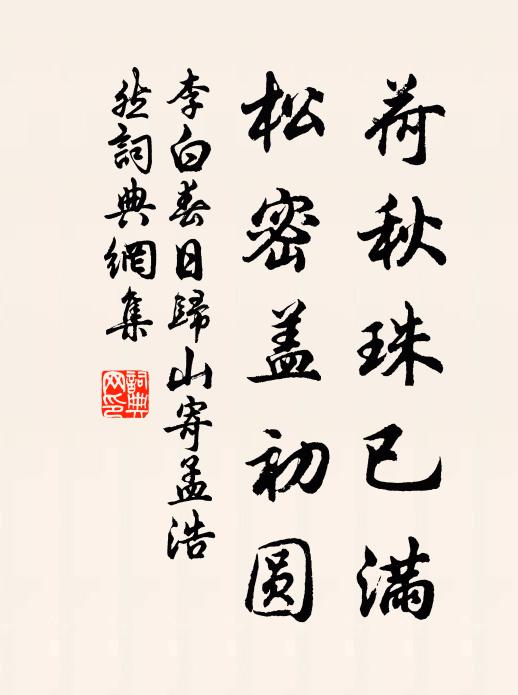 荷秋珠已满
松密盖初圆
李白春日歸山寄孟浩
然詞典網集
詞典网印